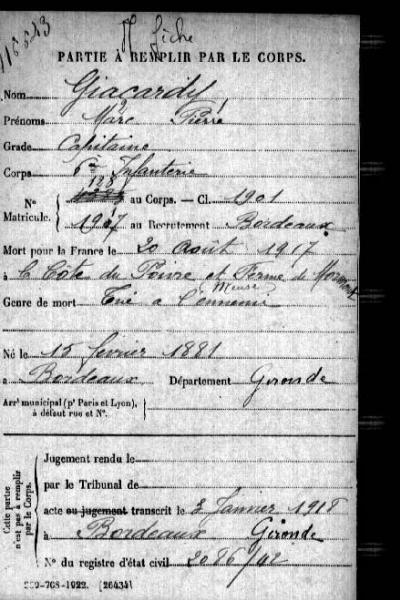 118.843 fiche
PARTIE À REMPLIR PAR LE CORPS.
Nom Giacardy
Prénoms Marc Pierre
Grade Capitaine
Corps 6e Infanterie
128
N° au Corps. — Cl. 1901
Matricule. 1907 au Recrutement Bordeaux
Mort pour la France le 20 Août 1917
à la Côte du Poivre et Ferme de Mormont
Meuse
Genre de mort Tué à l'ennemi
Né le 15 février 1881
à Bordeaux Département Gironde
Arrt municipal (pr Paris et Lyon),
à défaut rue et N°.
Cette partie
n'est pas à remplir
par le Corps.
Jugement rendu le
par le Tribunal de
acte ou jugement transcrit le 3 Janvier 1918
à Bordeaux Gironde
N° du registre d'état civil 2086/42
359-708-1922. [26434]